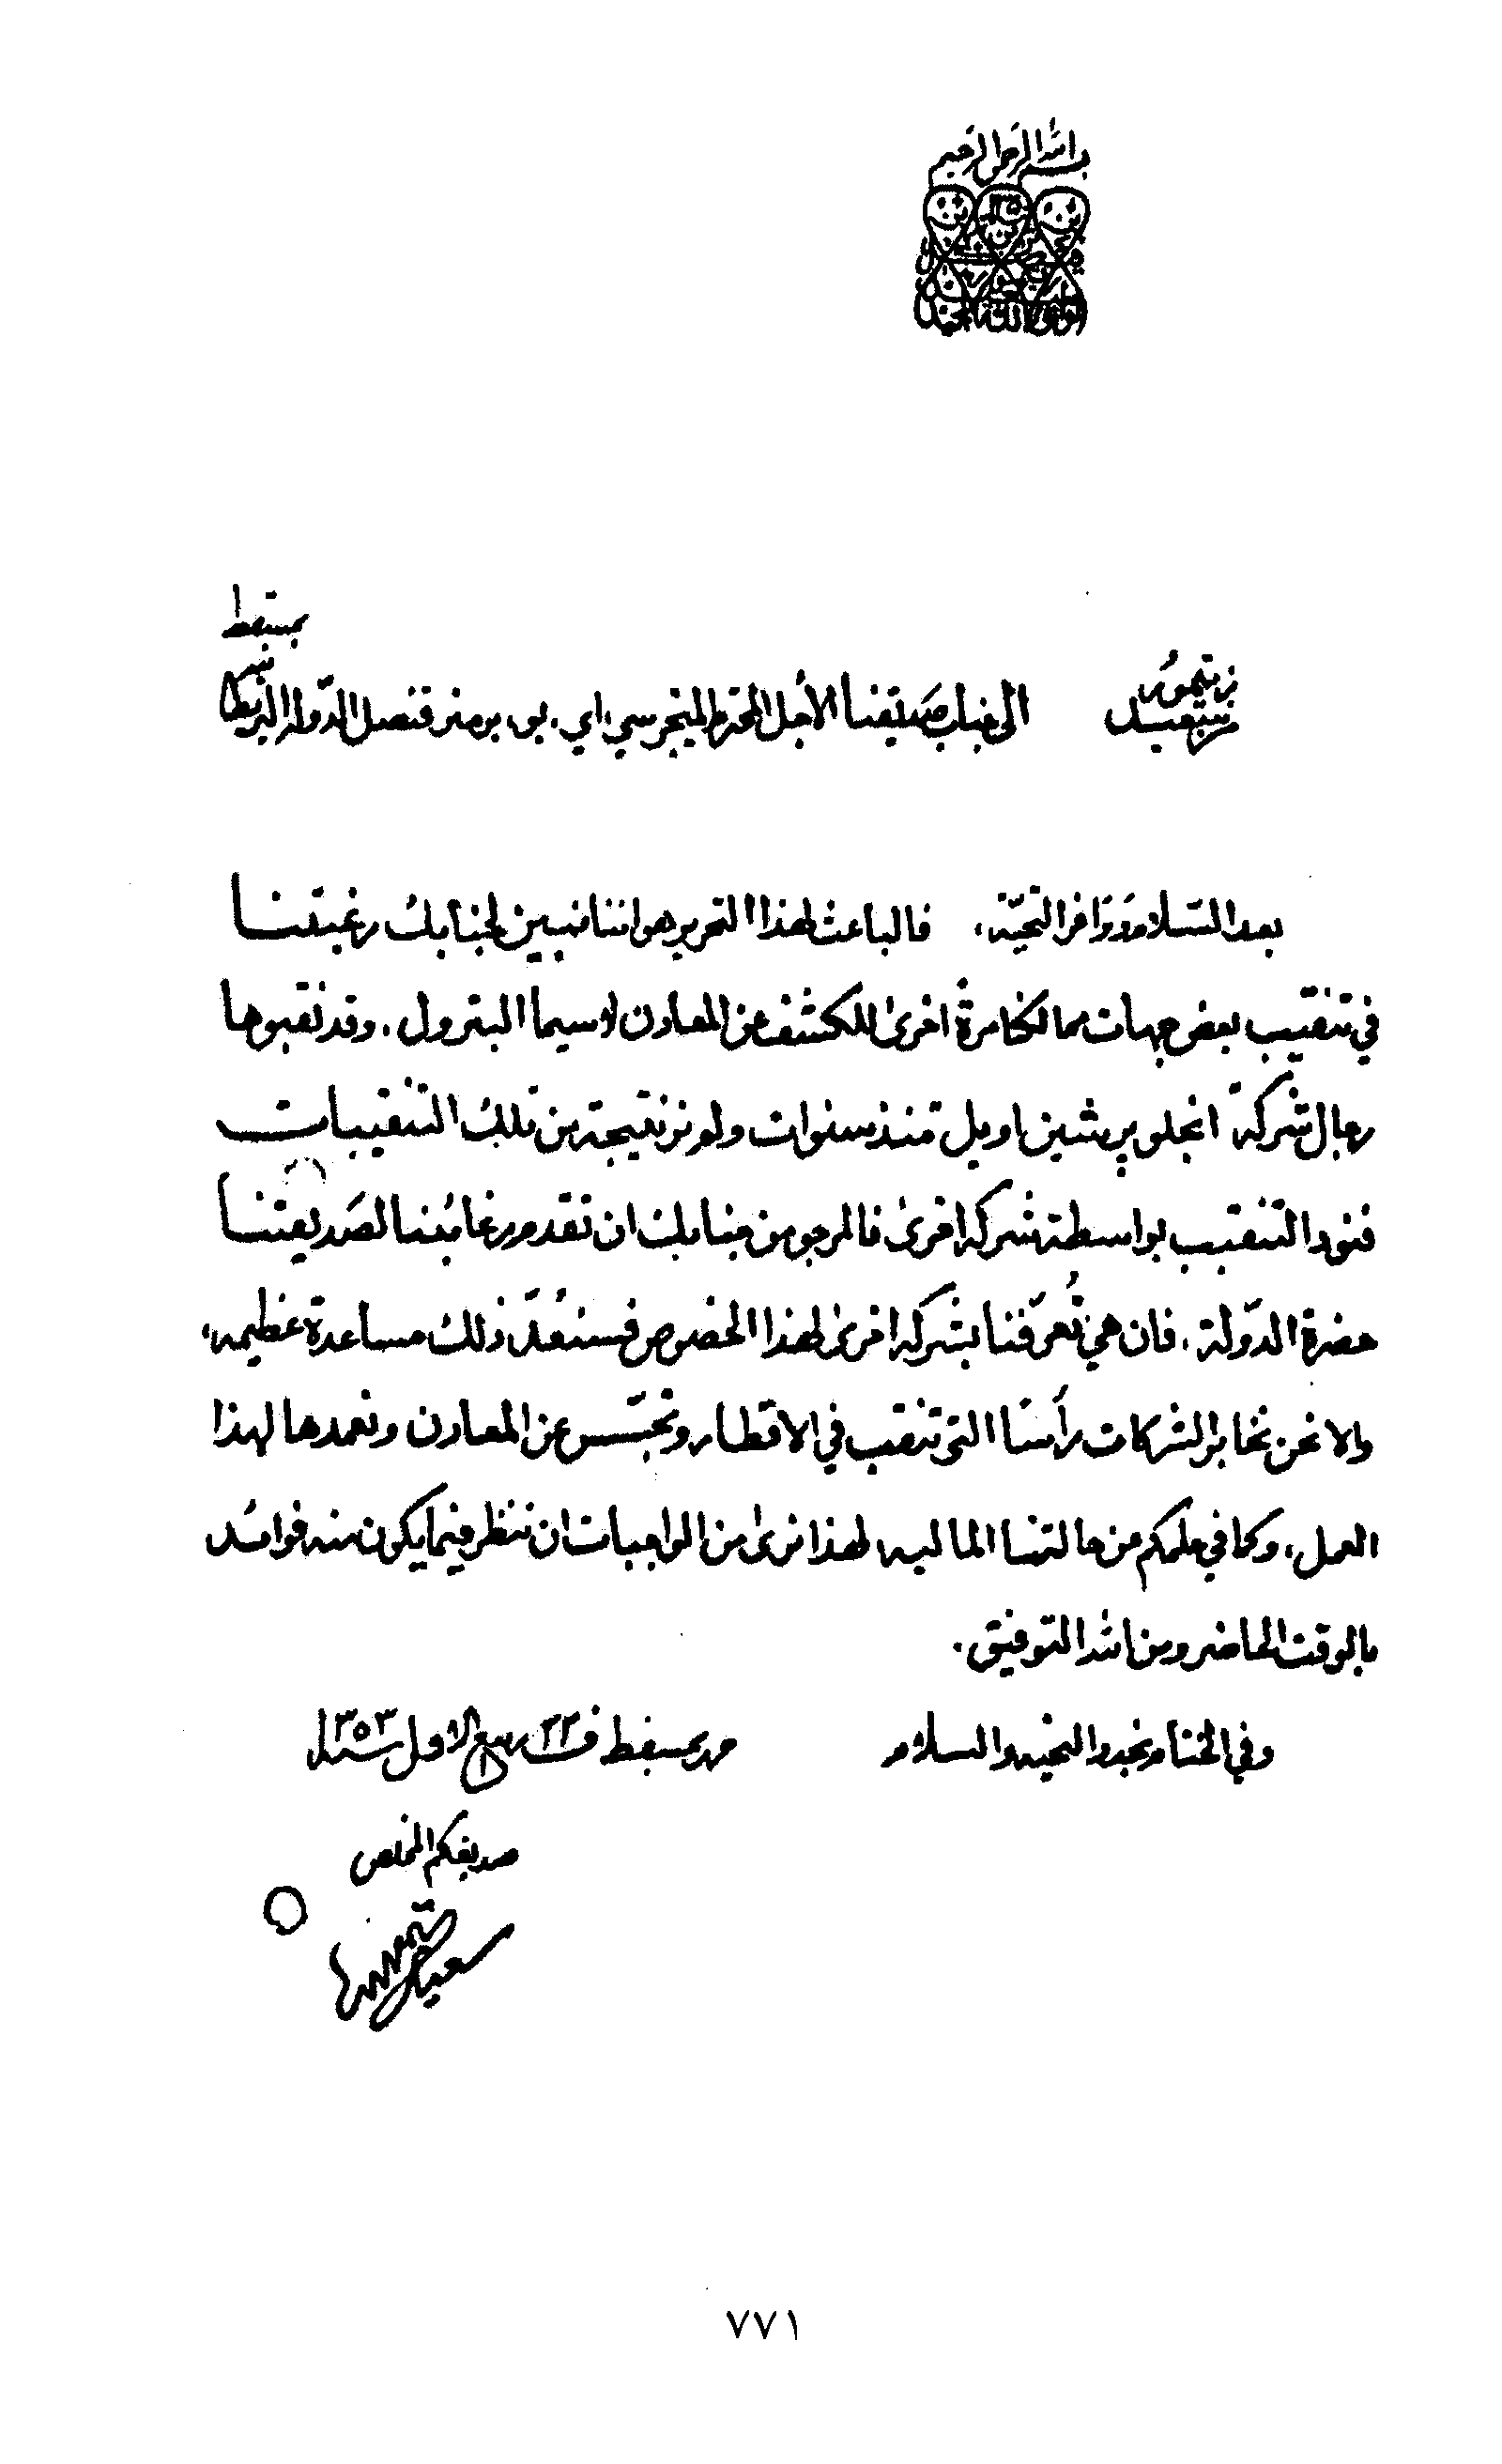 بسم الله الرحمن الرحيم
بمسقط
من سعيد بن تيمور
الى جناب صديقنا الأجل المحترم الميجر سي، اي، بي، بريمنر قنصل الدولة البريطانية
بعد السّلام وَوَافر التحيّة، فالباعث لهذا التحرير هو اننا نبين لجنابك رغبتنا
في تنقيب بعض جهات ممالكنا مرةً اخرىٰ للكشف عن المعادن لا سيما البترول، وقد نقبوها
رجال شركة انجلو پرشين اويل قمنذ سنوات ولم نر نتيجة من تلك التنقيبات
فنود التنقيب بواسطة شركة اخرىٰ فالمرجو من جنابك ان تقدم رغائبنا لصَديقتنا
حضرة الدّولة، فان هي تُعرّفنا بشركة اخرىٰ لهذا الخصوص فسنعُدّ ذلك مساعدة عظيمه،
والا نحن نخابر الشركات رأسًا التي تنقب في الاقطار وتجسّس عن المعادن ونعمدها لهذا
العمل، وكما في علمكم من حالتنا الماليه لهذا نرىٰ من الواجبات ان ننظر فيما يكون منه فوائد
بالوقت الحاضر ومن الله التوفيق.
وفي الختام نجدد التحيه والسلام
حرر بمسقط في ٢٢ ربيع الاول سنة ١٣٥٣
صديقكم المخلص
سعيد بن تيمور
٧٧١